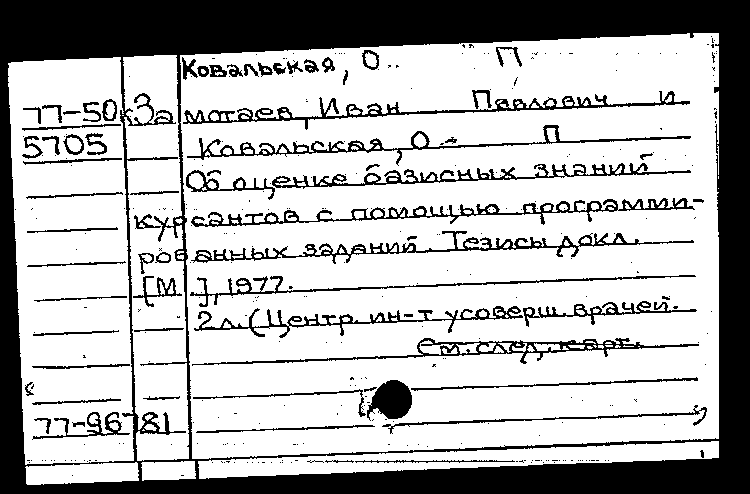 Ковальская, О.. П
77-50к За мотаев, Иван Павлович и
5705 Ковальская, О- П
Об оценке базисных знаний
курсантов с помощью программи-
рованных заданий. Тезисы докл.
[М.], 1977.
2л. (Центр. ин-т усоверш. врачей.
См. след. карт.
77-96781